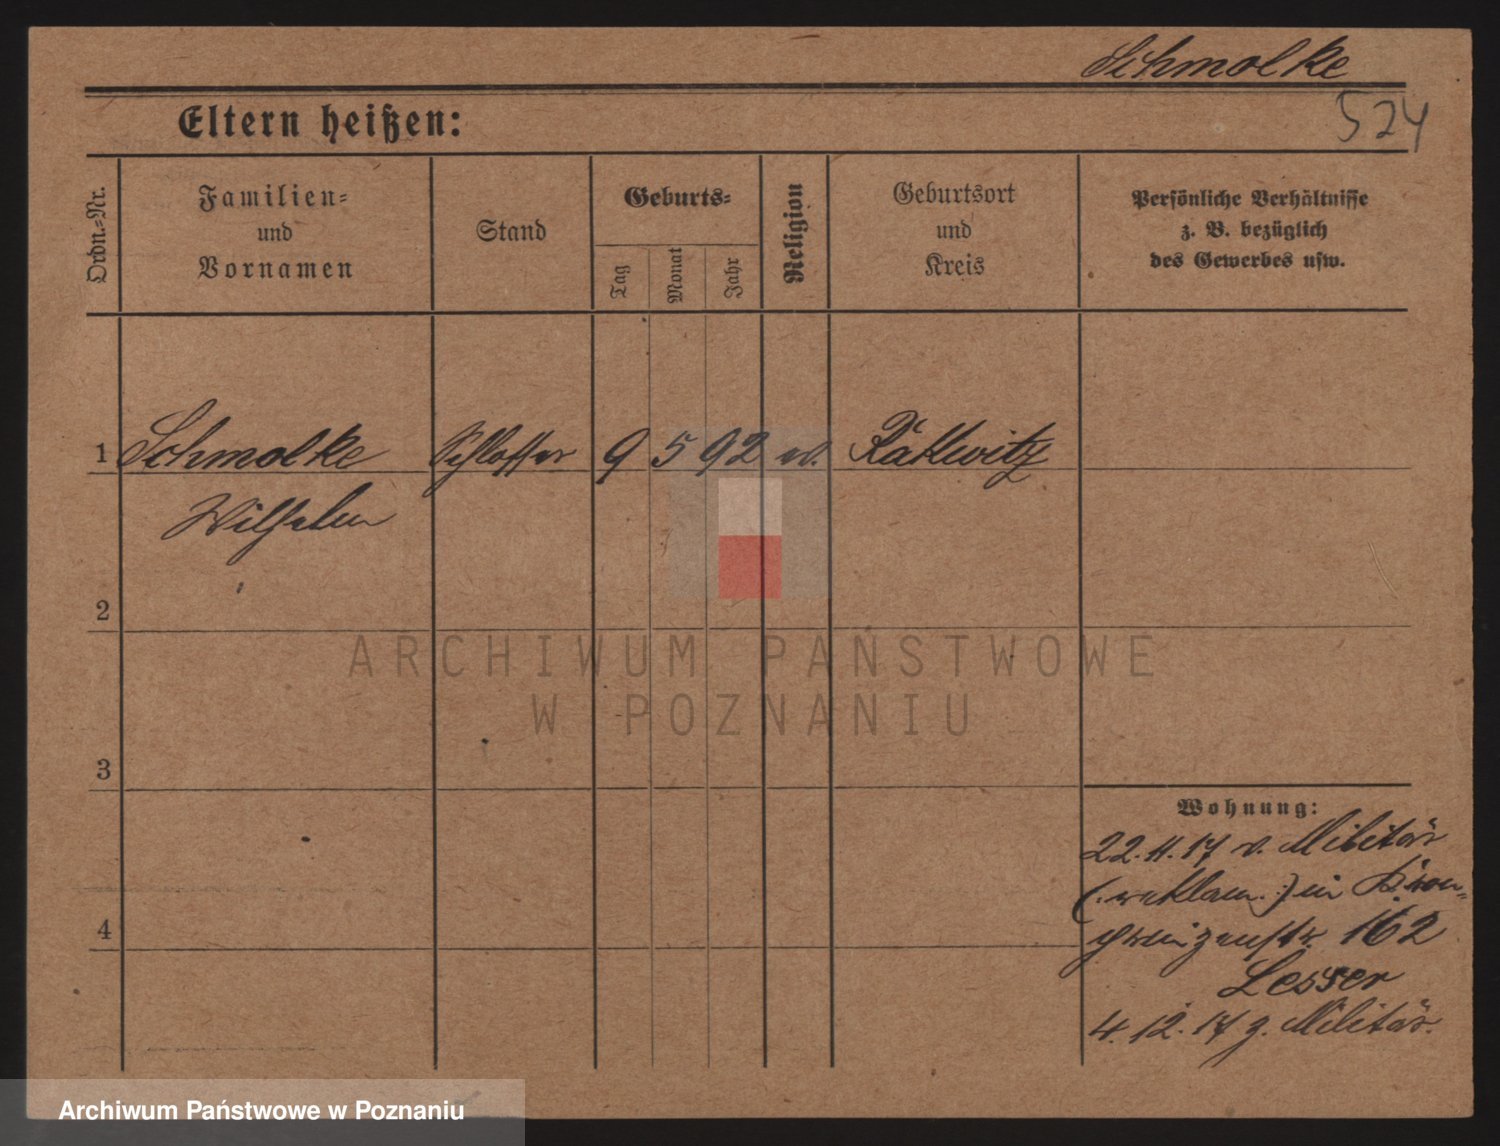 Schmolke
524
Eltern heißen:
Ordn.-Nr.
Familien-
und
Vornamen
Stand
Geburts-
Tag
Monat
Jahr
Religion
Geburtsort
und
Kreis
Persönliche Verhältnisse
z. B. bezüglich
des Gewerbes usw.
1 Schmolke Schlosser 9 5 92 ev.
Wilhelm
2
3
4
Wohnung:
22.11.17 v. Militär
(:reklam.:) in Kron-
prinzenstr. 162
Lesser
4.12.17 z. Militär.
ARCHIWUM PAŃSTWOWE
W POZNANIU
Archiwum Państwowe w Poznaniu